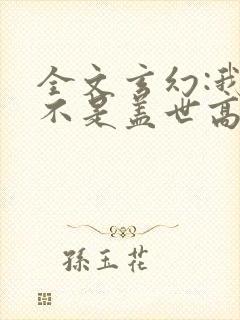 全文玄幻:我
不是盖世高
孫玉花